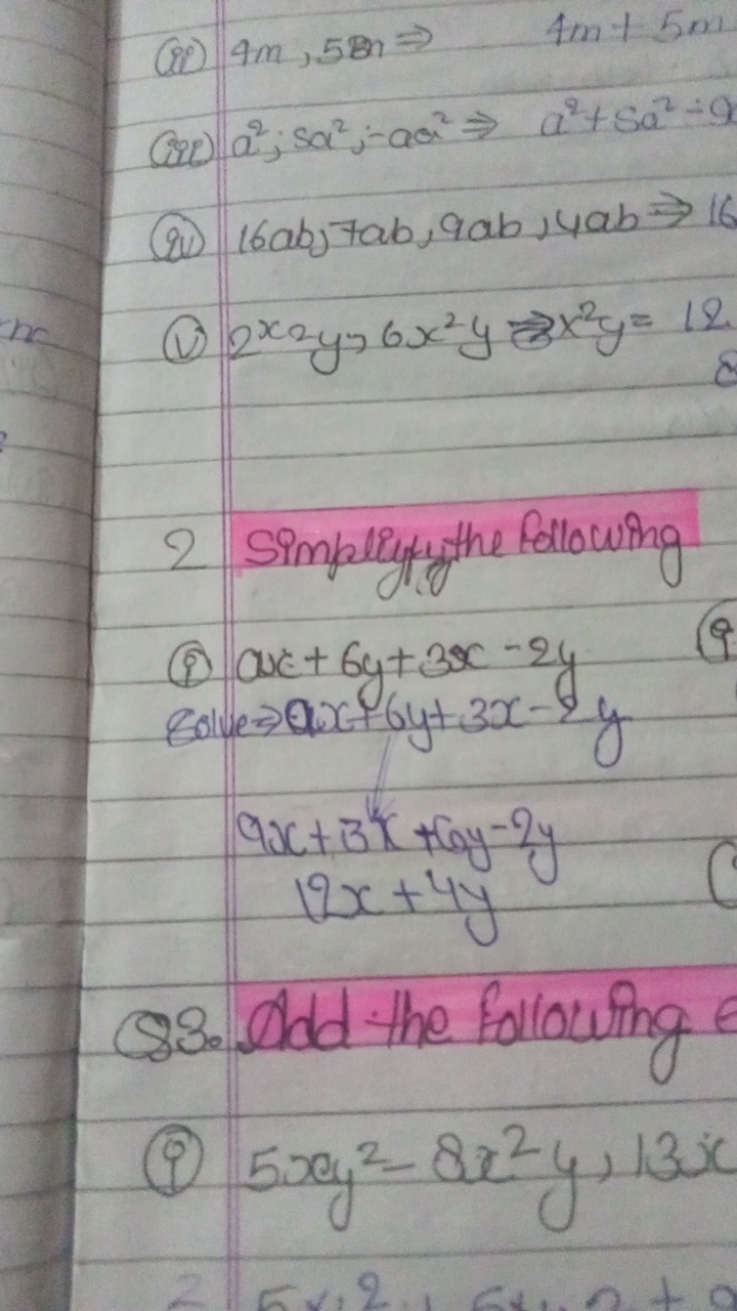 (ii) 4m, 5m ⇒ 4m + 5m
(iii) a², 5a², -9a² ⇒ a² + 5a² - 9
(iv) 16ab, 7ab, 9ab, 4ab ⇒ 16
(v) 2x2y, 6x²y x²y = 12
8
2 Simplify the following
(i) 9x + 6y + 3x - 2y
Solve ⇒ 9x + 6y + 3x - 2y
9x + 3x + 6y - 2y
12x + 4y
Q3. Add the following
(i) 5xy² - 8x²y, 13x